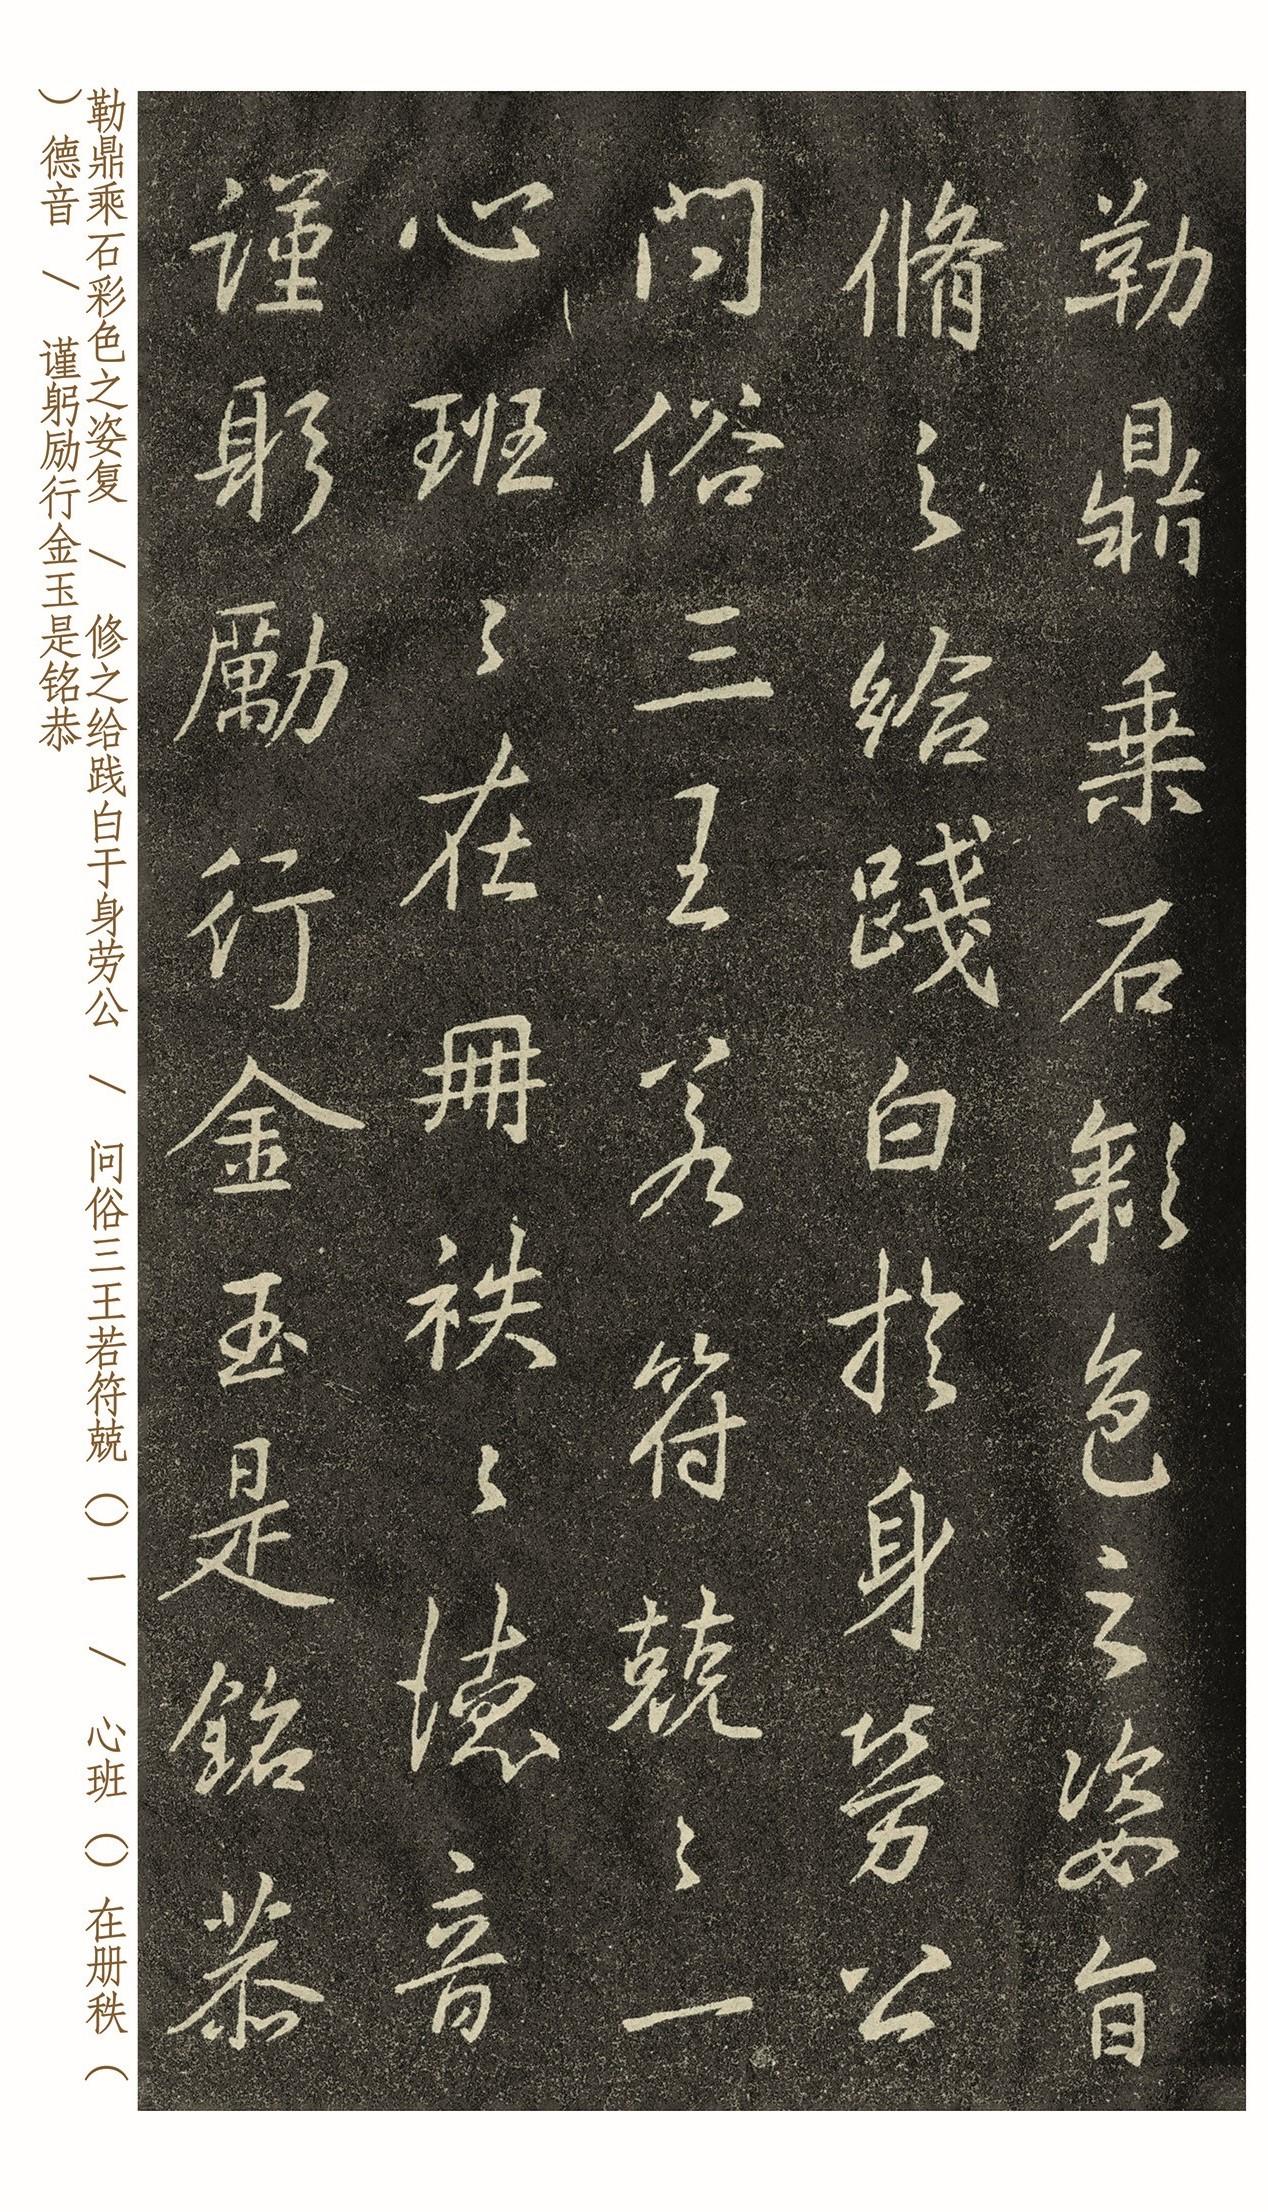 勒鼎乘石彩色之姿旨
脩之給踐白於身勞公
問俗三王若符兢々一
心班々在冊袟々德音
謹躬勵行金玉是銘恭
勒鼎乘石彩色之姿复 / 修之给践白于身劳公 / 问俗三王若符兢（）一 / 心班（）在册秩（
）德音 / 谨躬励行金玉是铭恭